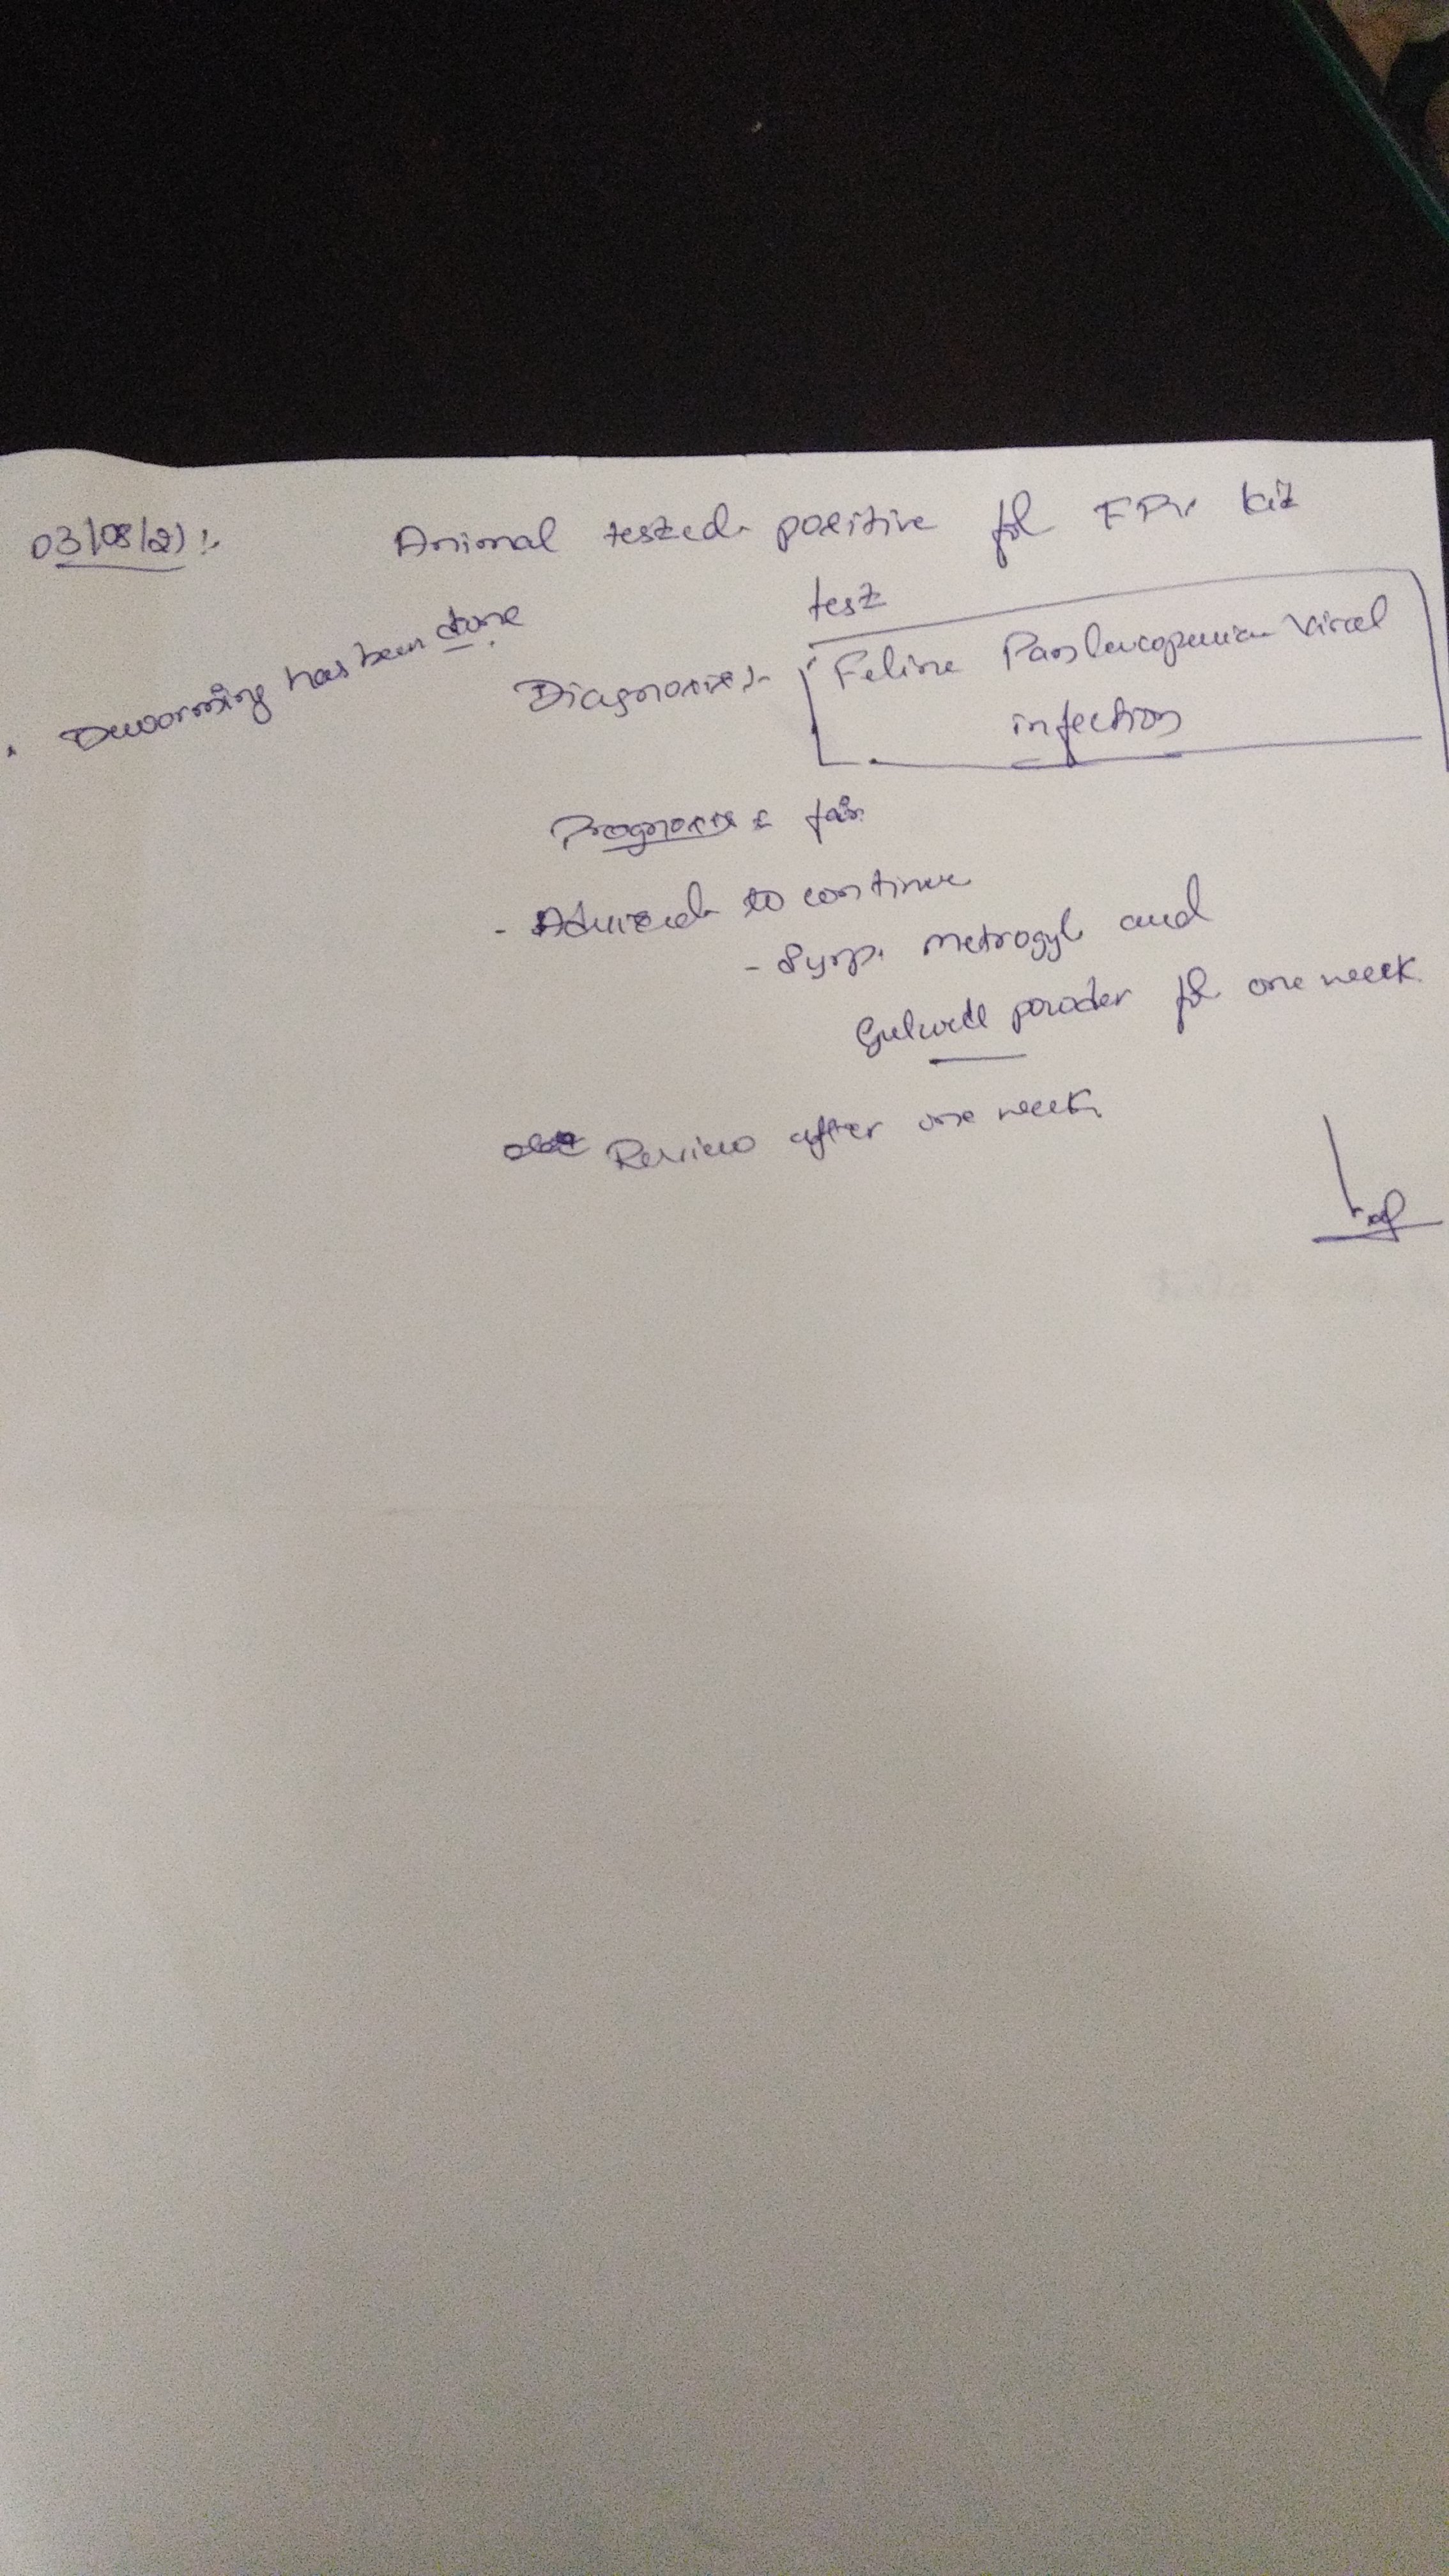 03/08/21:- Animal tested positive for FPV kit
test
. Deworming has been done
Diagnosis:- Feline Panleucopenian Viral
infection
Prognosis: fair
- Advised to continue
- Syrp. Metrogyl and
powder for one week
Review after one week